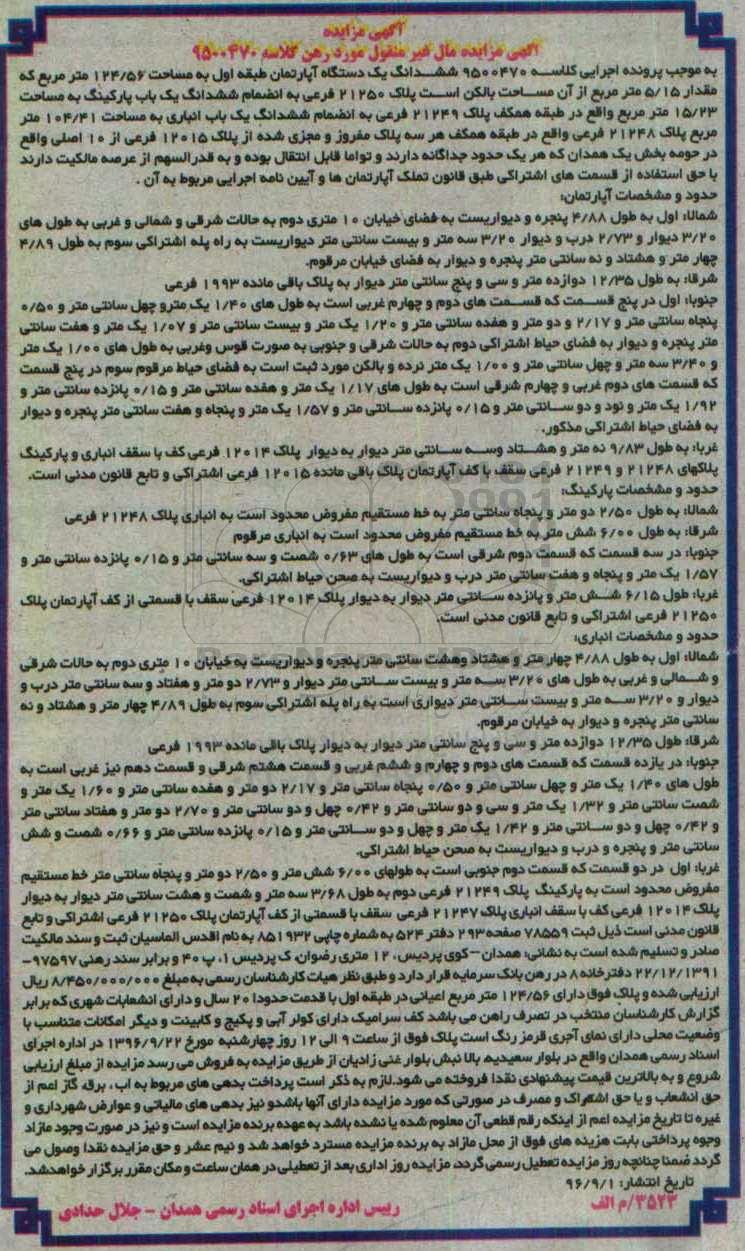 آگهی مزایده
آگهی مزایده مال غیر منقول مورد رهن کلاسه ۹۵۰۰۴۷۰
به موجب پرونده اجرایی کلاسه ۹۵۰۰۴۷۰ ششدانگ یک دستگاه آپارتمان طبقه اول به مساحت ۱۲۴/۵۶ متر مربع که
مقدار ۵/۱۵ متر مربع از آن مساحت بالکن است پلاک ۲۱۲۵۰ فرعی به انضمام ششدانگ یک باب پارکینگ به مساحت
۱۵/۲۳ متر مربع واقع در طبقه همکف پلاک ۲۱۲۴۹ فرعی به انضمام ششدانگ یک باب انباری به مساحت ۱۰۴/۴۱ متر
مربع پلاک ۲۱۲۴۸ فرعی واقع در طبقه همکف هر سه پلاک مفروز و مجزی شده از پلاک ۱۲۰۱۵ فرعی از ۱۰ اصلی واقع
در حومه بخش یک همدان که هر یک حدود جداگانه دارند و تواما قابل انتقال بوده و به قدرالسهم از عرصه مالکیت دارند
با حق استفاده از قسمت های اشتراکی طبق قانون تملک آپارتمان ها و آیین نامه اجرایی مربوط به آن .
حدود و مشخصات آپارتمان:
شمالا: اول به طول ۴/۸۸ پنجره و دیواریست به فضای خیابان ۱۰ متری دوم به حالات شرقی و شمالی و غربی به طول های
۳/۲۰ دیوار و ۲/۷۳ درب و دیوار ۳/۲۰ سه متر و بیست سانتی متر دیواریست به راه پله اشتراکی سوم به طول ۴/۸۹
چهار متر و هشتاد و نه سانتی متر پنجره و دیوار به فضای خیابان مرقوم.
شرقا: به طول ۱۲/۳۵ دوازده متر و سی و پنج سانتی متر دیوار به پلاک باقی مانده ۱۹۹۳ فرعی
جنوبا: اول در پنج قسمت که قسمت های دوم و چهارم غربی است به طول های ۱/۴۰ یک مترو چهل سانتی متر و ۰/۵۰
پنجاه سانتی متر و ۲/۱۷ و دو متر و هفده سانتی متر و ۱/۲۰ یک متر و بیست سانتی متر و ۱/۰۷ یک متر و هفت سانتی
متر پنجره و دیوار به فضای حیاط اشتراکی دوم به حالات شرقی و جنوبی به صورت قوس وغربی به طول های ۱/۰۰ یک متر
و ۳/۴۰ سه متر و چهل سانتی متر و ۱/۰۰ یک متر نرده و بالکن مورد ثبت است به فضای حیاط مرقوم سوم در پنج قسمت
که قسمت های دوم غربی و چهارم شرقی است به طول های ۱/۱۷ یک متر و هفده سانتی متر و ۰/۱۵ پانزده سانتی متر و
۱/۹۲ یک متر و نود و دو سانتی متر و ۰/۱۵ پانزده سانتی متر و ۱/۵۷ یک متر و پنجاه و هفت سانتی متر پنجره و دیوار
به فضای حیاط اشتراکی مذکور.
غربا: به طول ۹/۸۳ نه متر و هشتاد وسه سانتی متر دیوار به دیوار پلاک ۱۲۰۱۴ فرعی کف با سقف انباری و پارکینگ
پلاکهای ۲۱۲۴۸ و ۲۱۲۴۹ فرعی سقف با کف آپارتمان پلاک باقی مانده ۱۲۰۱۵ فرعی اشتراکی و تابع قانون مدنی است.
حدود و مشخصات پارکینگ:
شمالا: به طول ۲/۵۰ دو متر و پنجاه سانتی متر به خط مستقیم مفروض محدود است به انباری پلاک ۲۱۲۴۸ فرعی
شرقا: به طول ۶/۰۰ شش متر به خط مستقیم مفروض محدود است به انباری مرقوم
جنوبا: در سه قسمت که قسمت دوم شرقی است به طول های ۰/۶۳ شصت و سه سانتی متر و ۰/۱۵ پانزده سانتی متر و
۱/۵۷ یک متر و پنجاه و هفت سانتی متر درب و دیواریست به صحن حیاط اشتراکی.
غربا: طول ۶/۱۵ شش متر و پانزده سانتی متر دیوار به دیوار پلاک ۱۲۰۱۴ فرعی سقف با قسمتی از کف آپارتمان پلاک
۲۱۲۵۰ فرعی اشتراکی و تابع قانون مدنی است.
حدود و مشخصات انباری:
شمالا: اول به طول ۴/۸۸ چهار متر و هشتاد وهشت سانتی متر پنجره و دیواریست به خیابان ۱۰ متری دوم به حالات شرقی
و شمالی و غربی به طول های ۳/۲۰ سه متر و بیست سانتی متر دیوار و ۲/۷۳ دو متر و هفتاد و سه سانتی متر درب و
دیوار و ۳/۲۰ سه متر و بیست سانتی متر دیواری است به راه پله اشتراکی سوم به طول ۴/۸۹ چهار متر و هشتاد و نه
سانتی متر پنجره و دیوار به خیابان مرقوم.
شرقا: طول ۱۲/۳۵ دوازده متر و سی و پنج سانتی متر دیوار به دیوار پلاک باقی مانده ۱۹۹۳ فرعی
جنوبا: در یازده قسمت که قسمت های دوم و چهارم و ششم غربی و قسمت هشتم شرقی و قسمت دهم نیز غربی است به
طول های ۱/۴۰ یک متر و چهل سانتی متر و ۰/۵۰ پنجاه سانتی متر و ۲/۱۷ دو متر و هفده سانتی متر و ۱/۶۰ یک متر و
شصت سانتی متر و ۱/۳۲ یک متر و سی و دو سانتی متر و ۰/۴۲ چهل و دو سانتی متر و ۲/۷۰ دو متر و هفتاد سانتی متر
و ۰/۴۲ چهل و دو سانتی متر و ۱/۴۲ یک متر و چهل و دو سانتی متر و ۰/۱۵ پانزده سانتی متر و ۰/۶۶ شصت و شش
سانتی متر و پنجره و درب و دیواریست به صحن حیاط اشتراکی.
غربا: اول در دو قسمت که قسمت دوم جنوبی است به طولهای ۶/۰۰ شش متر و ۲/۵۰ دو متر و پنجاه سانتی متر خط مستقیم
مفروض محدود است به پارکینگ پلاک ۲۱۲۴۹ فرعی دوم به طول ۳/۶۸ سه متر و شصت و هشت سانتی متر دیوار به دیوار
پلاک ۱۲۰۱۴ فرعی کف با سقف انباری پلاک ۲۱۲۴۷ فرعی سقف با قسمتی از کف آپارتمان پلاک ۲۱۲۵۰ فرعی اشتراکی و تابع
قانون مدنی است ذیل ثبت ۷۸۵۵۹ صفحه ۲۹۳ دفتر ۵۲۴ به شماره چاپی ۸۵۱۹۳۲ به نام اقدس الماسیان ثبت و سند مالکیت
صادر و تسلیم شده است به نشانی: همدان -کوی پردیس، ۱۲ متری رضوان، ک پردیس ۱، پ ۴۰ و برابر سند رهنی ۹۷۵۹۷-
۲۲/۱۲/۱۳۹۱ دفترخانه ۸ در رهن بانک سرمایه قرار دارد و طبق نظر هیات کارشناسان رسمی به مبلغ ۸/۴۵۰/۰۰۰/۰۰۰ ریال
ارزیابی شده و پلاک فوق دارای ۱۲۴/۵۶ متر مربع اعیانی در طبقه اول با قدمت حدودا ۲۰ سال و دارای انشعابات شهری که برابر
گزارش کارشناسان منتخب در تصرف راهن می باشد کف سرامیک دارای کولر آبی و پکیج و کابینت و دیگر امکانات متناسب با
وضعیت محلی دارای نمای آجری قرمز رنگ است پلاک فوق از ساعت ۹ الی ۱۲ روز چهارشنبه مورخ ۱۳۹۶/۹/۲۲ در اداره اجرای
اسناد رسمی همدان واقع در بلوار سعیدیه بالا نبش بلوار غنی زادیان از طریق مزایده به فروش می رسد مزایده از مبلغ ارزیابی
شروع و به بالاترین قیمت پیشنهادی نقدا فروخته می شود.لازم به ذکر است پرداخت بدهی های مربوط به اب، برق، گاز اعم از
حق انشعاب و یا حق اشتراک و مصرف در صورتی که مورد مزایده دارای آنها باشدو نیز بدهی های مالیاتی و عوارض شهرداری و
غیره تا تاریخ مزایده اعم از اینکه رقم قطعی آن معلوم شده یا نشده باشد به عهده برنده مزایده است و نیز در صورت وجود مازاد
وجوه پرداختی بابت هزینه های فوق از محل مازاد به برنده مزایده مسترد خواهد شد و نیم عشر و حق مزایده نقدا وصول می
گردد ضمنا چنانچه روز مزایده تعطیل رسمی گردد، مزایده روز اداری بعد از تعطیلی در همان ساعت و مکان مقرر برگزار خواهدشد.
تاریخ انتشار: ۹۶/۹/۱
۳۵۲۳/م الف
رییس اداره اجرای اسناد رسمی همدان - جلال حدادی